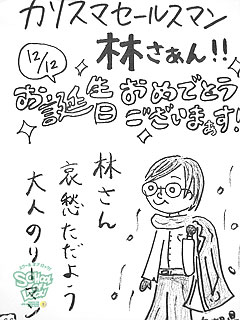 カリスマセールスマン
林さぁん!!
12/12
お誕生日おめでとう
ございまぁす!
林さん
哀愁ただよう
大人のリーマン